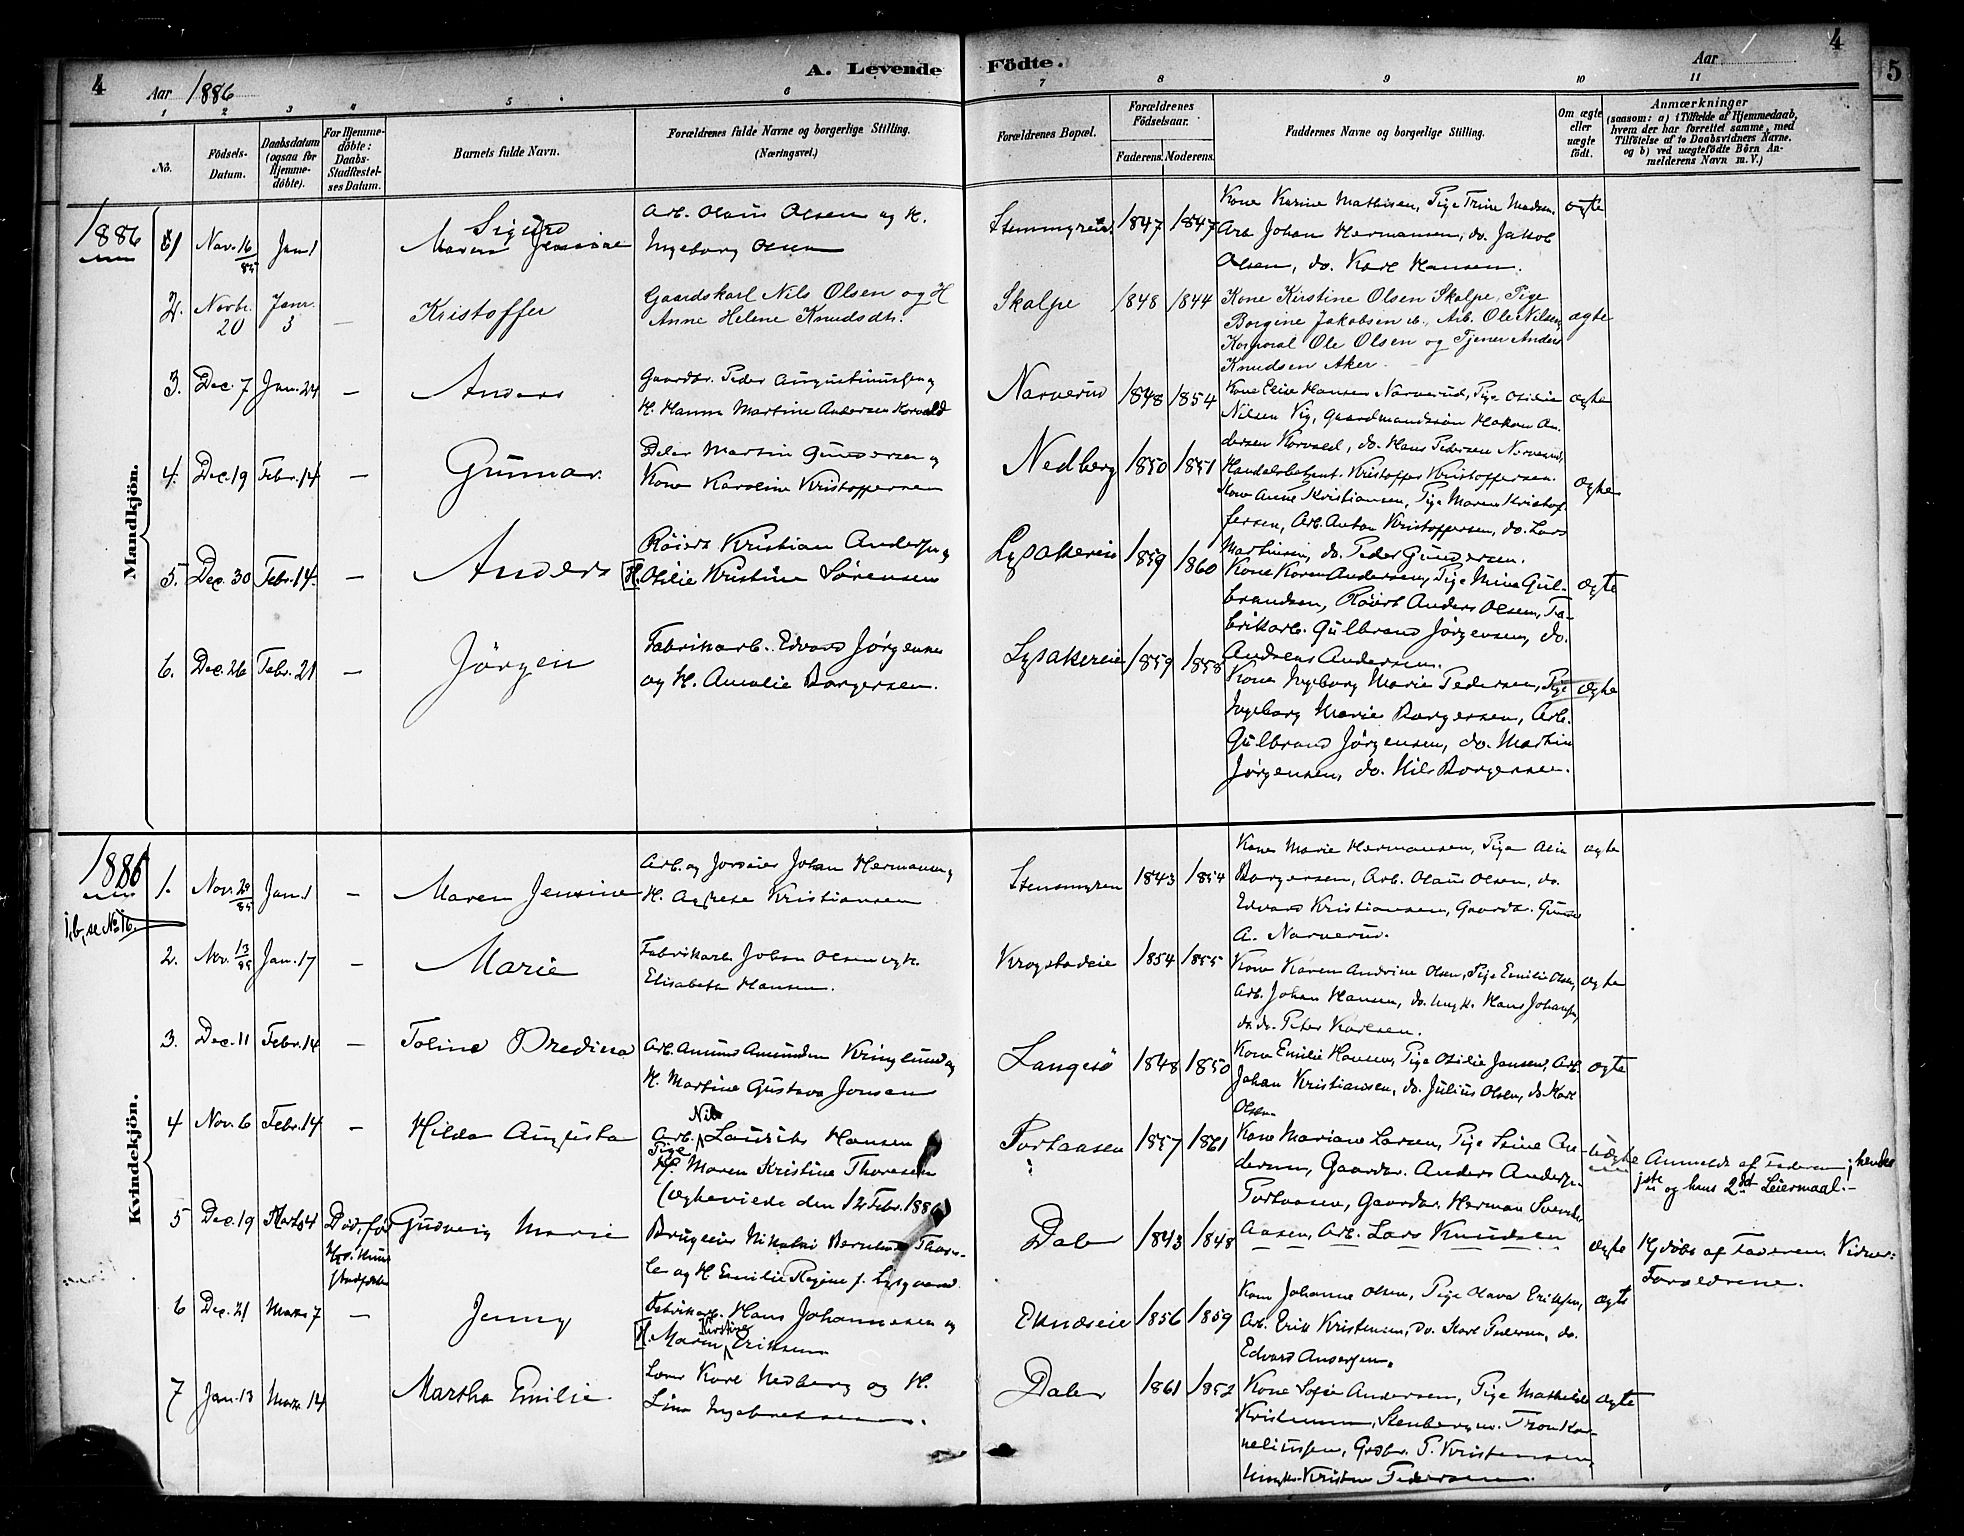 4
Aar 1886
A. Levende Födte.
Aar
4
5
1 2 3 4 5 6 7 8 9 10 11
No.
Födsels-Datum.
Daabsdatum (ogsaa for Hjemme-döbte).
For Hjemme-döbte: Daabs-Stadfæstel-ses Datum.
Barnets fulde Navn.
Forældrenes fulde Navne og borgerlige Stilling.
(Næringsvei.)
Forældrenes Bopæl.
Forældrenes Födselsaar.
Faderens. Moderens.
Faddernes Navne og borgerlige Stilling.
Om ægte eller uægte födt.
Anmærkninger
(saasom: a) i Tilfælde af Hjemmedaab,
hvem der har forrettet samme, med
Tilföielse af to Daabsvidners Navne.
og b) ved uægtefödte Börn An-
melderens Navn m. V.)
Mandkjön.
1886
1 Nov. 16/85 Jan 1 Sigurd
Maren Jensine
Arb. Olaus Olsen og H.
Ingeborg Olsen
1847 1847
Kone Karine Mathisen, Pige Trine Madsen.
Arb Johan Hermansen, do. Jakob
Olsen, do. Karl Hansen.
ægte
2. Novbr. 20 Janr. 3 — Kristoffer
Gaardskarl Nils Olsen og H
Anne Helene Knudsdtr.
Skalpe 1848 1844
Kone Kirstine Olsen Skalpe, Pige
Borgine Jakobsen ib., Arb. Ole Nilsen,
Korporal Ole Olsen og Tjener Anders
Knudsen Aker.
ægte
3. Dec. 7 Jan. 24 — Anders
Gaardbr. Peder Augustinussen og
H. Hanna Martine Andersen Korvald
Narverud 1848 1854
Kone Elise Hansen Narverud, Pige Otilie
Nilsen Vig, Gaardmandssön Hakon An-
dersen Korvald, do. Hans Pedersen Narverud,
Handelsbetjent. Kristoffer Kristoffersen.
ægte
4. Dec. 19 Febr. 14 — Gunnar.
Deler Martin Gundersen og
Kone Karoline Kristoffersen
Nedberg 1850 1851
Kone Anne Kristiansen, Pige Maren Kristof-
fersen, Arb. Anton Kristoffersen, do. Lars
Martinsen, do. Peder Gundersen.
ægte
5. Dec. 30 Febr. 14. — Anders
Röiert Kristian Andersen og
H. Otilie Kristine Sørensen
Lysakereie 1859 1860
Kone Karen Andersen, Pige Mina Gul-
brandsen, Röiert Anders Olsen, Fa-
brikarb. Gulbrand Jørgensen, do.
Andreas Andersen.
ægte
6. Dec. 26 Febr. 21 — Jørgen
Fabrikarb. Edvard Jørgensen
og H. Amalie Borgersen.
Lysakereie 1859 1858
Kone Ingeborg Marie Pedersen, Pige
Ingeborg Marie Borgersen, Arb.
Gulbrand Jørgensen, do. Martin
Jørgensen, do. Nils Borgersen.
ægte
Kvindekjön.
1886
1. Nov. 29/85 Jan 1 — Maren Jensine
Arb. og Jordeier Johan Hermansen og
H. Agnese Kristiansen
Stensmyren 1843 1854
Kone Marie Hermansen, Pige
Borgersen, Arb. Olaus Olsen, do.
Edvard Kristiansen, Gaardbr.
A. Narverud.
ægte
1, b, se No 16.
2. Nov. 13/85 Jan. 17 — Marie
Fabrikarb. Johan Olsen og H.
Elisabeth Hansen.
Krogstadeie 1854 1855
Kone Karen Andrine Olsen, Pige Emilie Olsen,
Arb. Johan Hansen, do. Ungk. Hans Johansen,
do. do. Peter Karlsen.
ægte
3. Dec. 11 Febr. 14 — Toline Bredine
Arb. Amund Amundsen Kringlund og
H. Martine Gustava Jonsen
Langesö 1848 1850
Kone Emilie Hansen, Pige Otilie Jansen, Arb.
Johan Kristiansen, do. Julius Olsen, do. Karl
Olsen
ægte
4 Nov. 6 Febr. 14 — Hilda Augusta
Nils
Arb. Laurits Hansen
Pige
H. Maren Kristine Thoresen
(ægteviede den 12 Febr. 1886)
Portaasen 1857 1861
Kone Mariane Larsen, Pige Stine An-
dersen, Gaardbr. Anders Anders.
Portaasen, Gaardbr. Herman Svendsen
Aasen, Arb. Lars Knudsen
uægte
Anmeldt af Faderen; hendes
1ste og hans 2det Leiermaal.
5 Dec. 19 Död, før
Gudveig Marie
Brugseier Nikolai
og H Emilie Regine f. Lysgaard.
Daler 1843 1848
ægte
Hjdöbt af Faderen. Vidner:
Forældrene.
6 Dec. 21 Marts 7 — Jenny
Fabrikarb. Hans Johannesen og
Kirstine
H. Maren Eriksen
Eknæseie 1856 1859
Kone Johanne Olsen, Pige Olava Eriksen,
Arb. Erik Kristensen, do. Karl Pedersen, do.
Edvard Andersen.
ægte
7 Jan. 13 Mars 14 Martha Emilie
Karl Nedberg og H.
Lina Ingebretsen.
Daler 1861 1852
Kone Sofie Andersen, Pige Mathilde
Kristensen, Tron Kor-
neliussen, Grdbr. P. Kristensen,
Ungk. Kristen Pedersen.
ægte